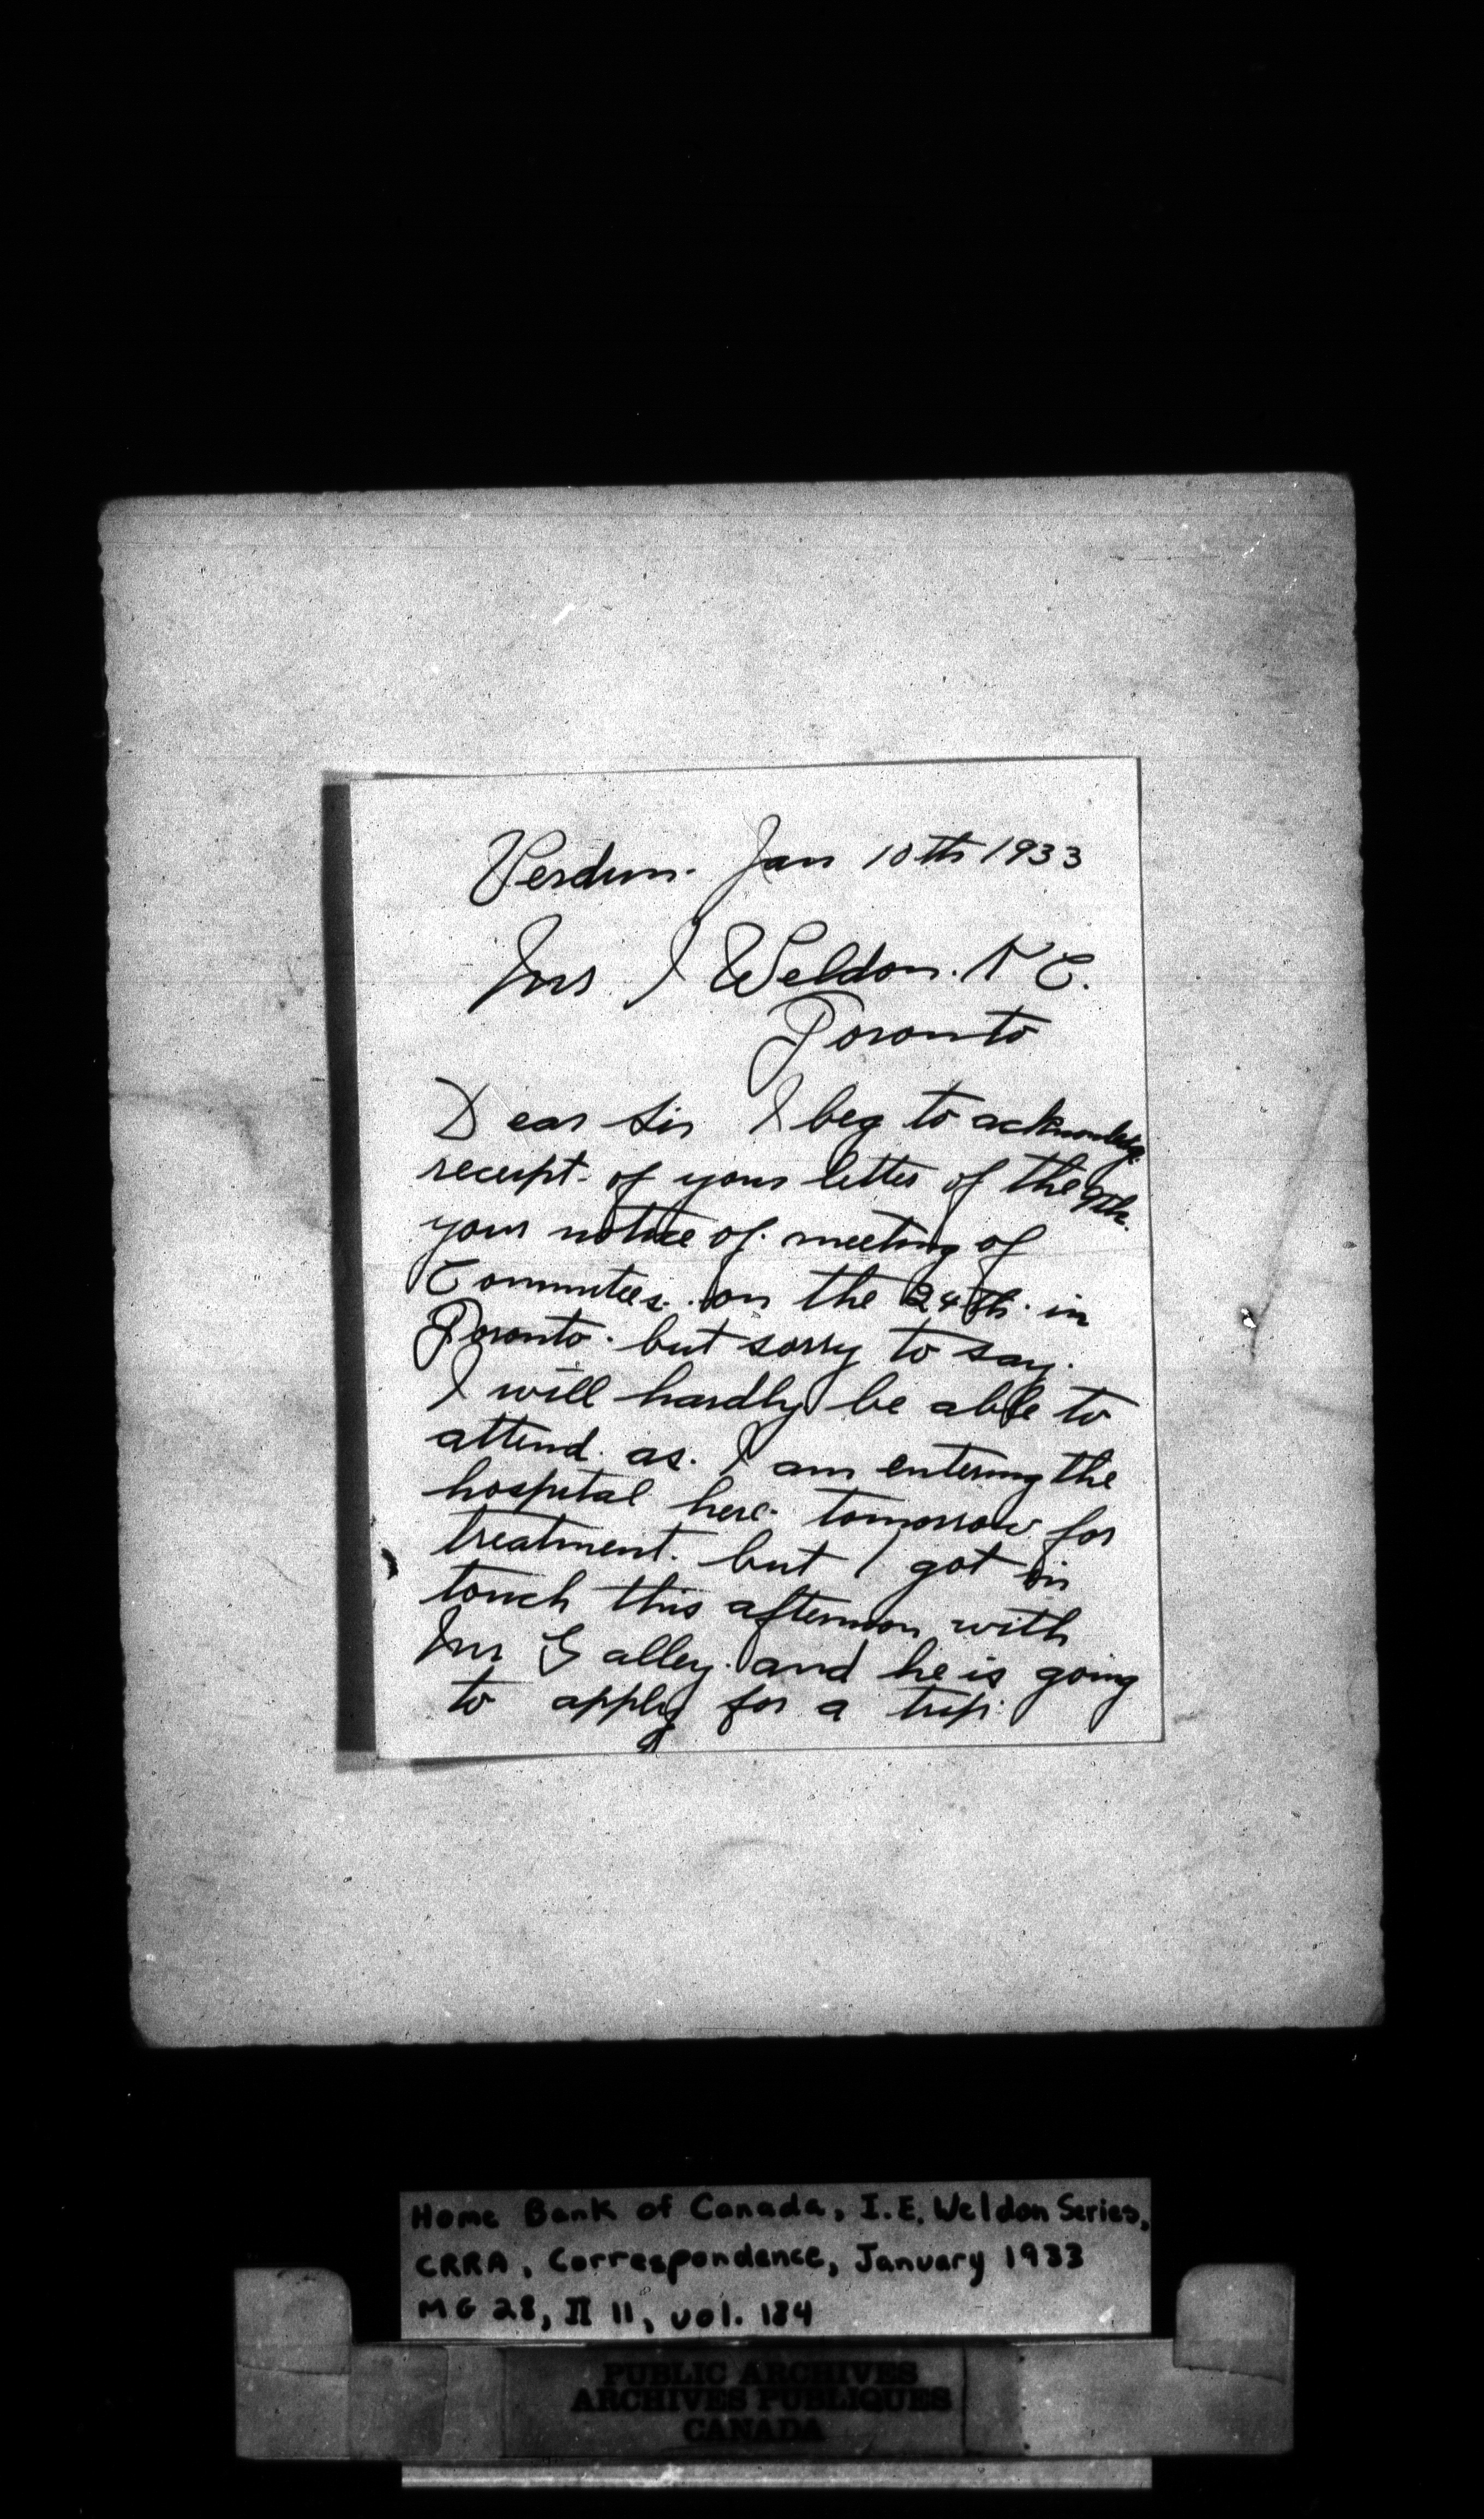 Verdun. Jan 10th 1933
Mr I Weldon. K C.
Toronto
Dear Sir I beg to acknowledg.
receipt. of your letter of the 9th.
your notice of meeting of
Committees. on the 24th. in
Toronto. but sorry to say.
I will hardly be able to
attend. as. I am entering the
hospital here. tomorrow for
treatment. but I got in
touch this afternoon with
Mr Galley. and he is going
to apply for a trip.
Home Bank of Canada, I.E. Weldon Series,
CRRA, Correspondence, January 1933
MG 28, II 11, vol. 184
PUBLIC ARCHIVES
ARCHIVES PUBLIQUES
CANADA